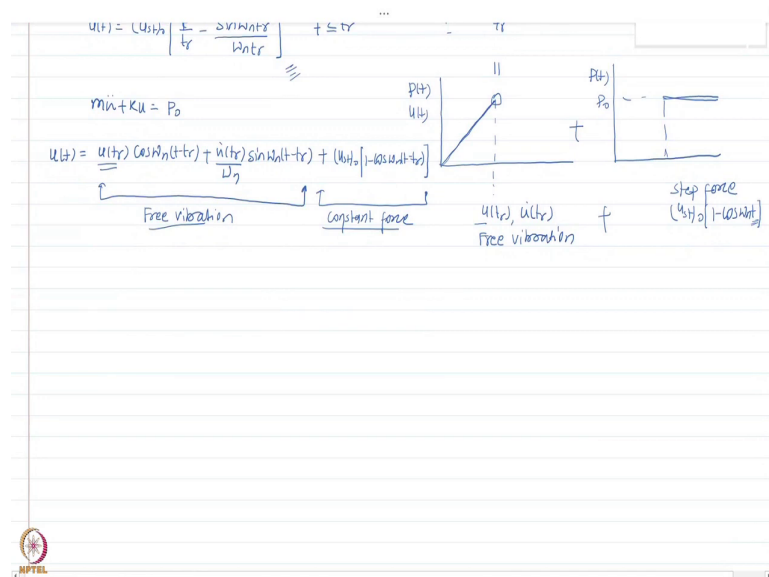 u(t) = (ust)₀ [t/tr - sinωntr/ωntr] t ≤ tr
tr
mü+Ku = P₀
u(t) = u(tr) cosωn(t-tr) + u̇(tr)/ωn sinωn(t-tr) + (ust)₀[1-cosωn(t-tr)]
Free vibration
constant force
P(t)
u(t)
+
P(t)
P₀
u(tr), u̇(tr)
Free vibration
+
step force
(ust)₀[1-cosωnt]
NPTEL